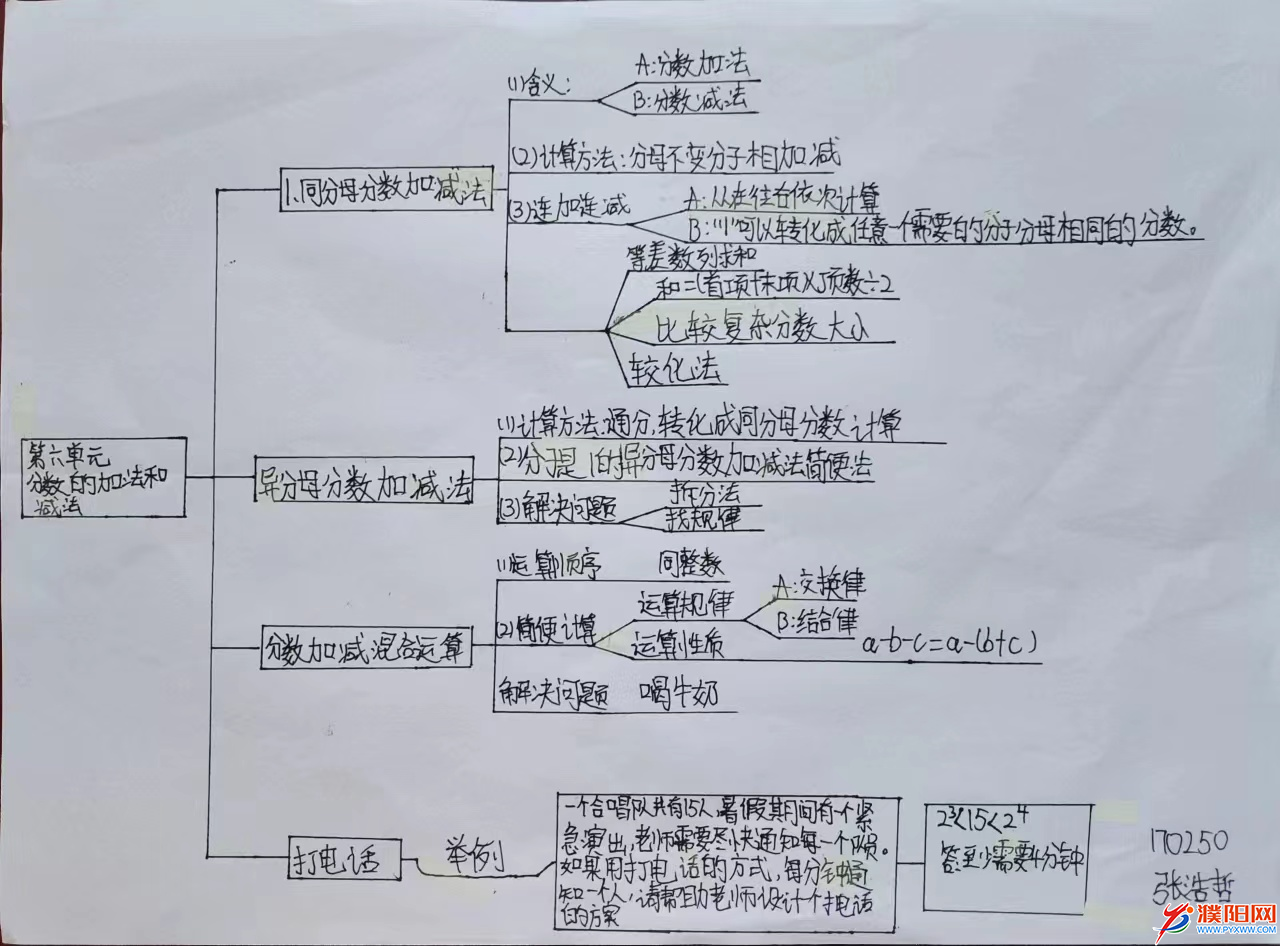 (1)含义:
A:分数加法
B:分数减法
(2)计算方法:分母不变分子相加减
1、同分母分数加减法
(3)连加连减
A:从左往右依次计算
B:"1"可以转化成任意一个需要的分子分母相同的分数。
等差数列求和
和=(首项+末项)×项数÷2
比较复杂分数大小
较化法
第六单元
分数的加法和
减法
异分母分数加减法
(1)计算方法:通分,转化成同分母分数计算
(2)分子是1的异分母分数加减法简便法
(3)解决问题
拆分法
找规律
分数加减混合运算
(1)运算顺序 同整数
(2)简便计算
运算规律
A:交换律
B:结合律
运算性质 a-b-c=a-(b+c)
解决问题 喝牛奶
打电话
举例
一个合唱队共有15人,暑假期间有一个紧
急演出,老师需要尽快通知每一个队员。
如果用打电话的方式,每分钟通
知一个人,请帮助老师设计个打电话
的方案
2³<15<2⁴
答:至少需要4分钟
170250
张浩哲
濮阳网
WWW.PYXWW.COM